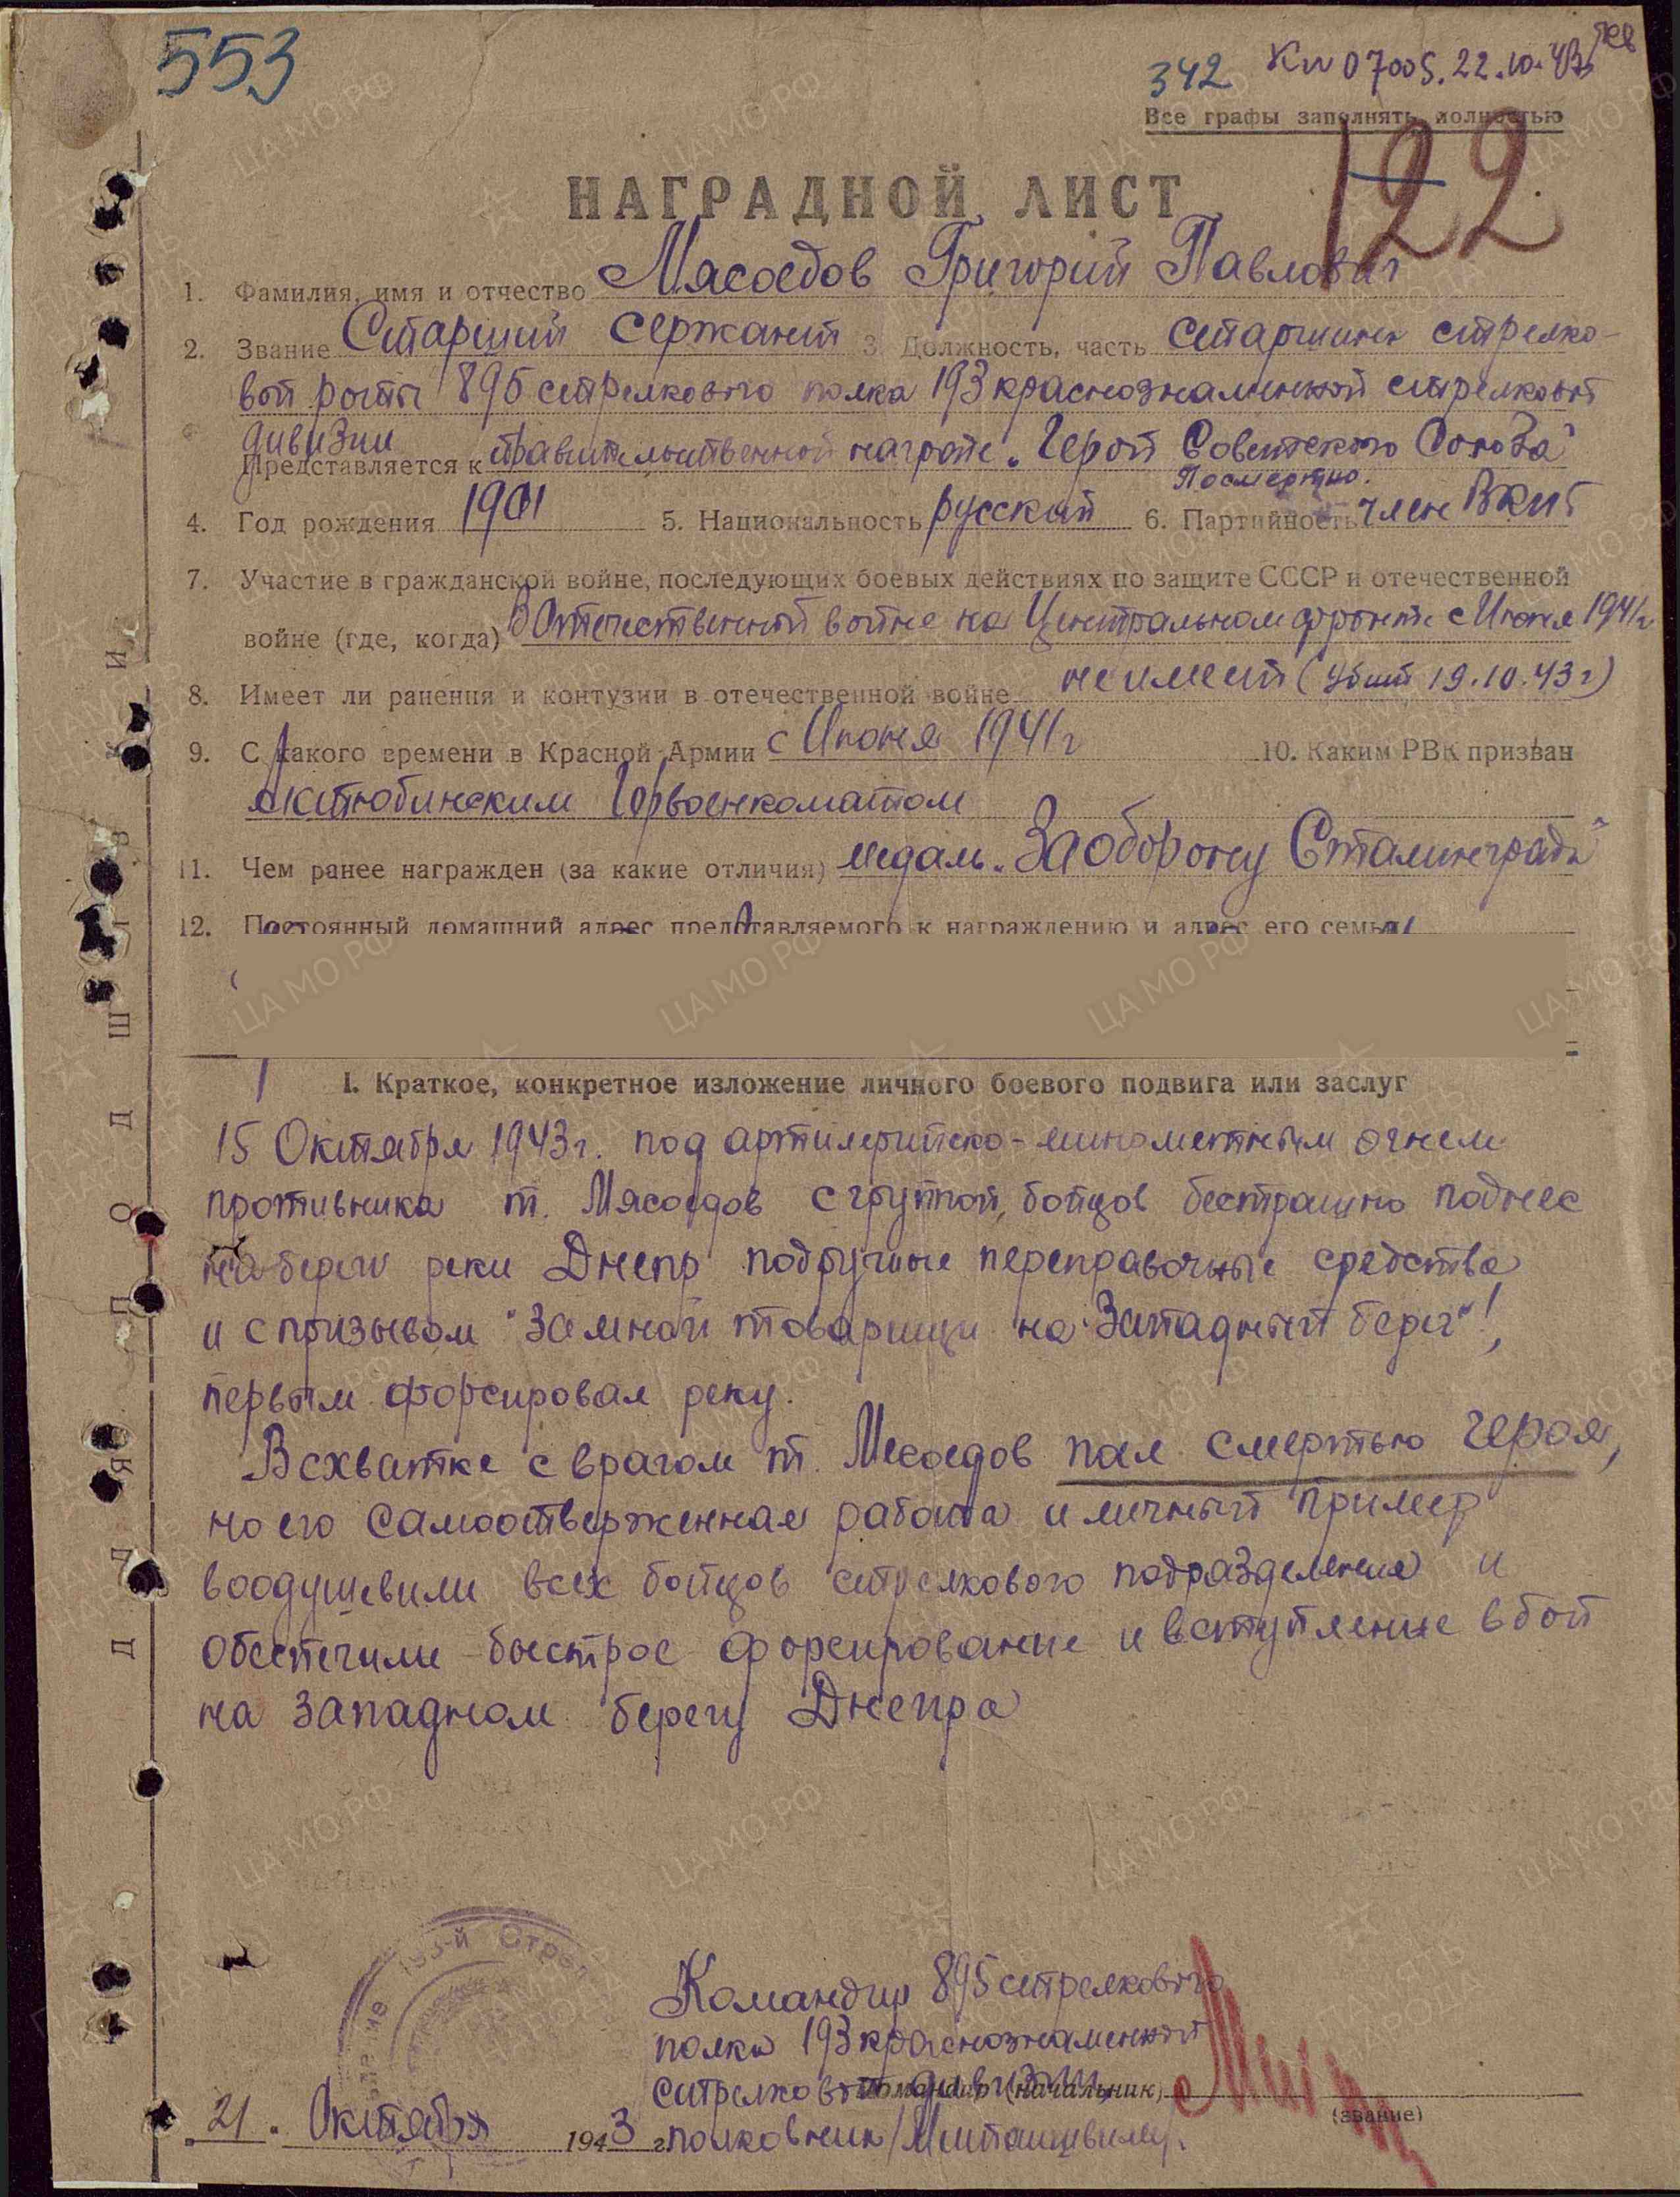 553
342 Кп 07005. 22.10.43
Все графы заполнять полностью
122
НАГРАДНОЙ ЛИСТ
1. Фамилия, имя и отчество Мясоедов Григорий Павлович
2. Звание Старший сержант 3. Должность, часть старшина стрелко-
вой роты 895 стрелкового полка 193 краснознаменной стрелковой
дивизии
Представляется к правительственной награде „Герой Советского Союза"
Посмертно.
4. Год рождения 1901 5. Национальность русский 6. Партийность член ВКПб
7. Участие в гражданской войне, последующих боевых действиях по защите СССР и отечественной
войне (где, когда) В Отечественной войне на Центральном фронте с Июня 1941г
8. Имеет ли ранения и контузии в отечественной войне не имеет (убит 19.10.43г)
9. С какого времени в Красной Армии с Июня 1941г 10. Каким РВК призван
Актюбинским Горвоенкоматом
11. Чем ранее награжден (за какие отличия) медаль „За оборону Сталинграда"
12. Постоянный домашний адрес представляемого к награждению и адрес его семьи
I. Краткое, конкретное изложение личного боевого подвига или заслуг
15 Октября 1943г. под артилерийско-минометным огнем
противника т. Мясоедов с группой бойцов бестрашно поднес
на берег реки Днепр подручные переправочные средства
и с призывом "За мной товарищи на Западный берег"!,
первым форсировал реку.
В схватке с врагом т. Месоедов пал смертью героя,
но его самоотверженная работа и личный пример
воодушевили всех бойцов стрелкового подразделения и
обеспечили быстрое форсирование и вступление в бой
на западном берегу Днепра
193-й Стрел
Командир 895 стрелкового
полка 193 краснознаменной
стрелковой дивизии
Командир (начальник)
(звание)
21. Октября 1943 г. полковник
ДЛЯ ПОДШИВКИ
ЦА МО РФ
ПАМЯТЬ НАРОДА